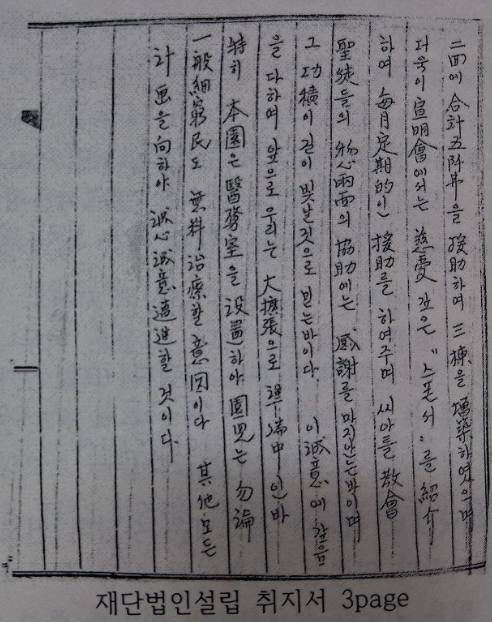 二面에 合計五阡弗을 援助하여 三棟을 增築하엿으며
더욱이 宣明會에서는 慈愛 깊은 "스폰서"를 紹介
하여 每月定期的인 援助를 하여주며 씨아틀 敎會
聖徒들의 物心兩面의 協助에는 感謝를 마지않는바이며
그 功積이 길이 빛날것으로 믿는바이다. 이 誠意에 갚음
을 다하여 앞으로 우리는 大擴張으로 準備中인바
特히 本園은 醫務室을 設置하야 園兒는 勿論
一般細窮民도 無料治療할 意図이다 其他모든
計画을 向하야 誠心誠意 邁進할 것이다.
재단법인설립 취지서 3page